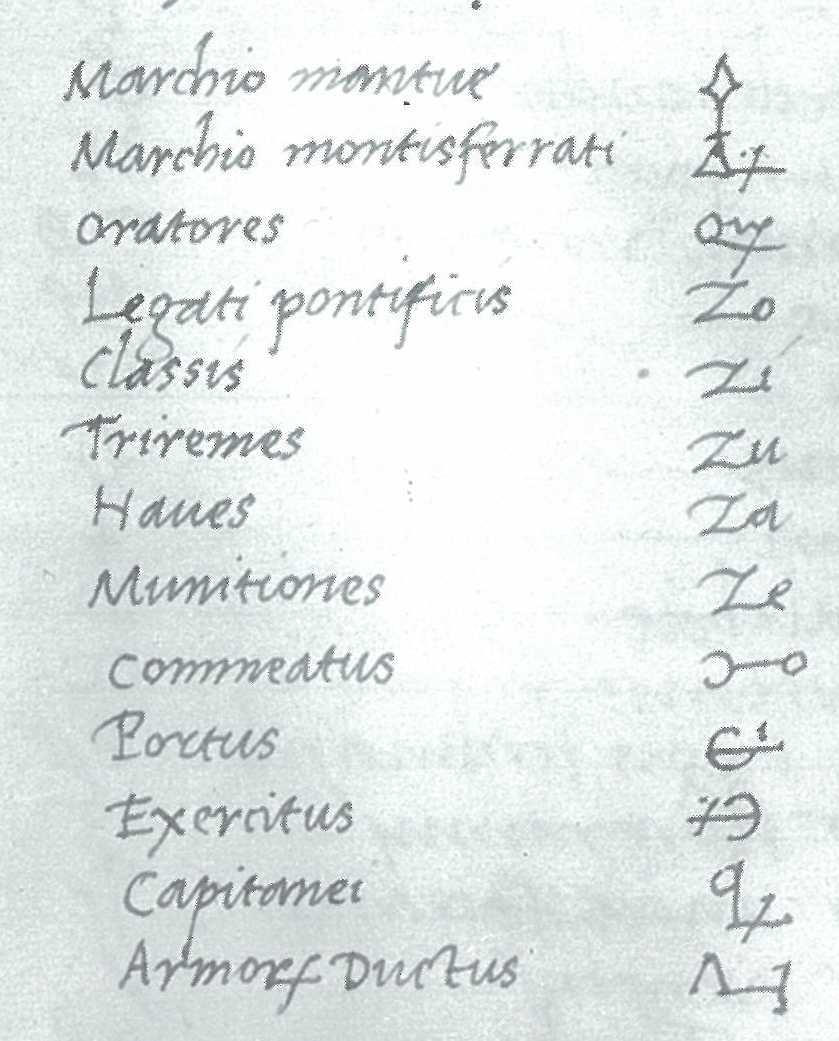 Marchio mantue
Marchio montisferrati
oratores
Legati pontificis Zo
Classis Zi
Triremes Zu
Naues Za
Munitiones Ze
commeatus
Portus
Exercitus
Capitanei
Ductus